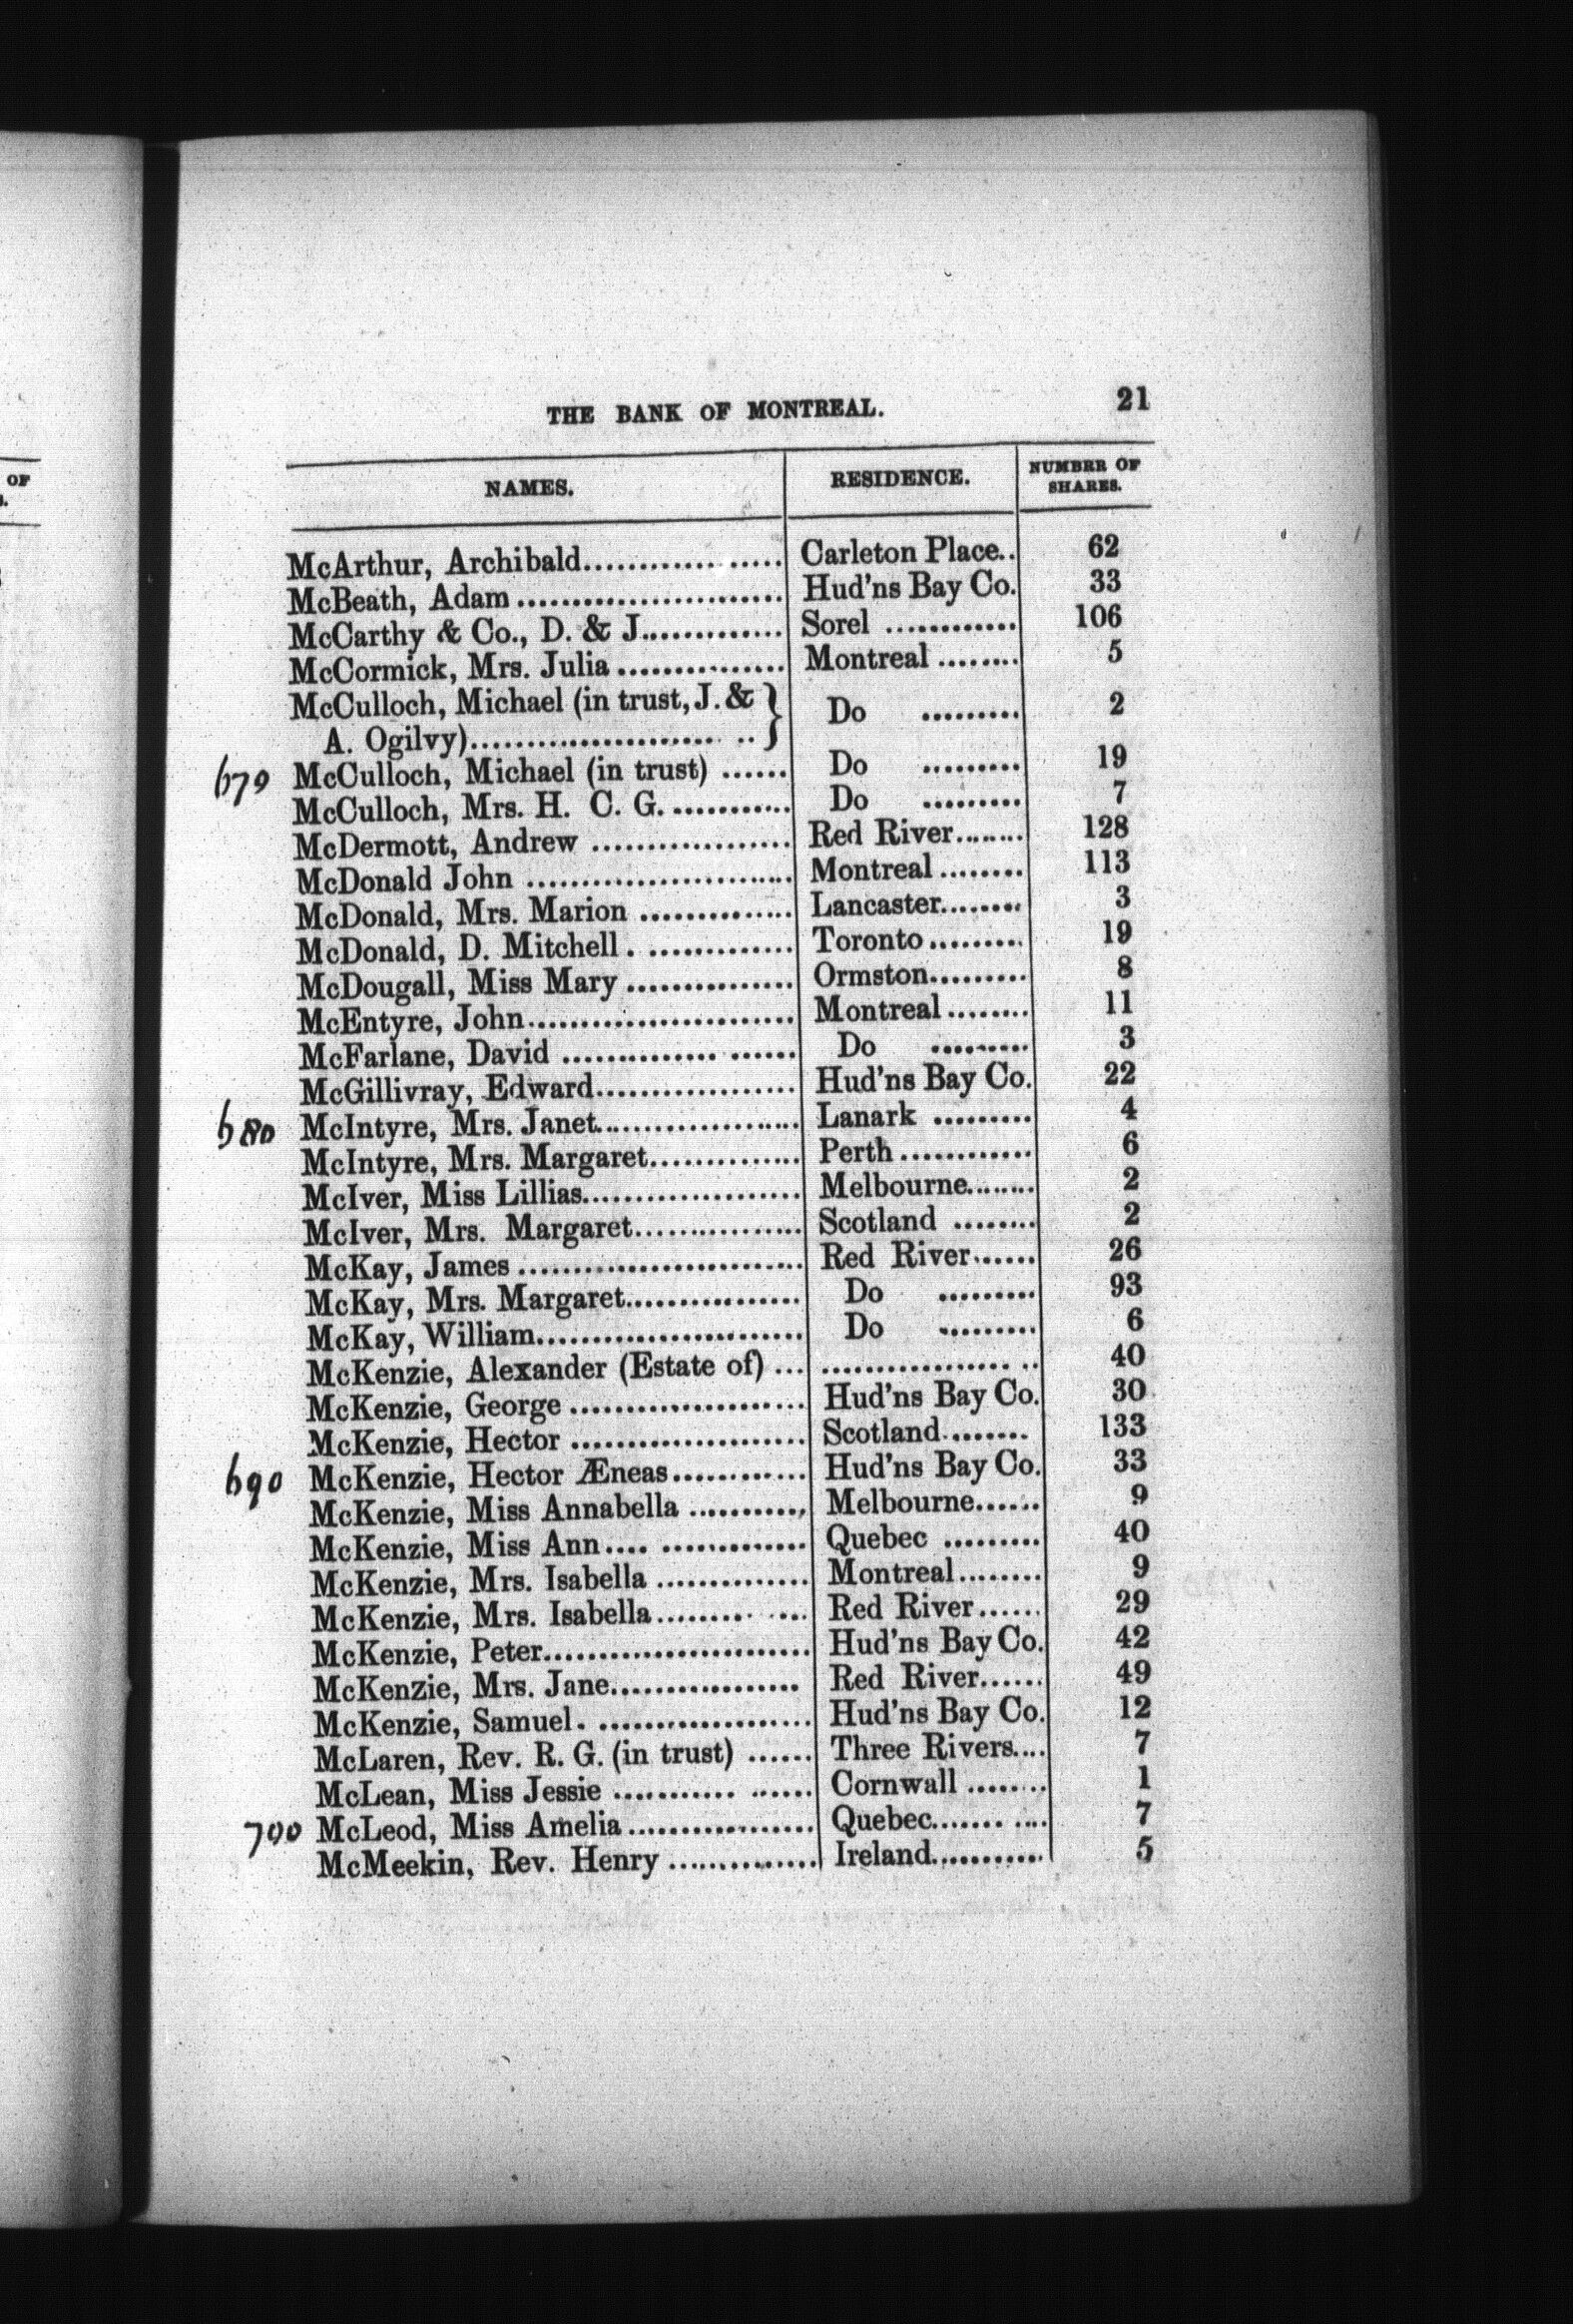 OF
THE BANK OF MONTREAL. 21
NAMES. RESIDENCE. NUMBER OF SHARES.
McArthur, Archibald.................. Carleton Place.. 62
McBeath, Adam........................ Hud'ns Bay Co. 33
McCarthy & Co., D. & J............. Sorel ............ 106
McCormick, Mrs. Julia............... Montreal........ 5
McCulloch, Michael (in trust, J. & } Do ......... 2
A. Ogilvy)........................ .. }
670 McCulloch, Michael (in trust) ...... Do ......... 19
McCulloch, Mrs. H. C. G............ Do ......... 7
McDermott, Andrew .................. Red River........ 128
McDonald John ........................ Montreal........ 113
McDonald, Mrs. Marion .............. Lancaster........ 3
McDonald, D. Mitchell. .............. Toronto......... 19
McDougall, Miss Mary............... Ormston......... 8
McEntyre, John........................ Montreal........ 11
McFarlane, David .............. ...... Do ......... 3
McGillivray, Edward.................. Hud'ns Bay Co. 22
680 McIntyre, Mrs. Janet................... Lanark ......... 4
McIntyre, Mrs. Margaret.............. Perth............ 6
McIver, Miss Lillias.................... Melbourne........ 2
McIver, Mrs. Margaret................ Scotland ........ 2
McKay, James.......................... Red River...... 26
McKay, Mrs. Margaret................ Do ......... 93
McKay, William........................ Do ......... 6
McKenzie, Alexander (Estate of)... ................. .. 40
McKenzie, George..................... Hud'ns Bay Co. 30
McKenzie, Hector ..................... Scotland........ 133
690 McKenzie, Hector Æneas............ Hud'ns Bay Co. 33
McKenzie, Miss Annabella ........... Melbourne...... 9
McKenzie, Miss Ann.... ............. Quebec ......... 40
McKenzie, Mrs. Isabella .............. Montreal........ 9
McKenzie, Mrs. Isabella......... .... Red River...... 29
McKenzie, Peter........................ Hud'ns Bay Co. 42
McKenzie, Mrs. Jane................. Red River...... 49
McKenzie, Samuel. ................... Hud'ns Bay Co. 12
McLaren, Rev. R. G. (in trust) ...... Three Rivers.... 7
McLean, Miss Jessie ........... ...... Cornwall ........ 1
700 McLeod, Miss Amelia................. Quebec....... .... 7
McMeekin, Rev. Henry .............. Ireland........... 5